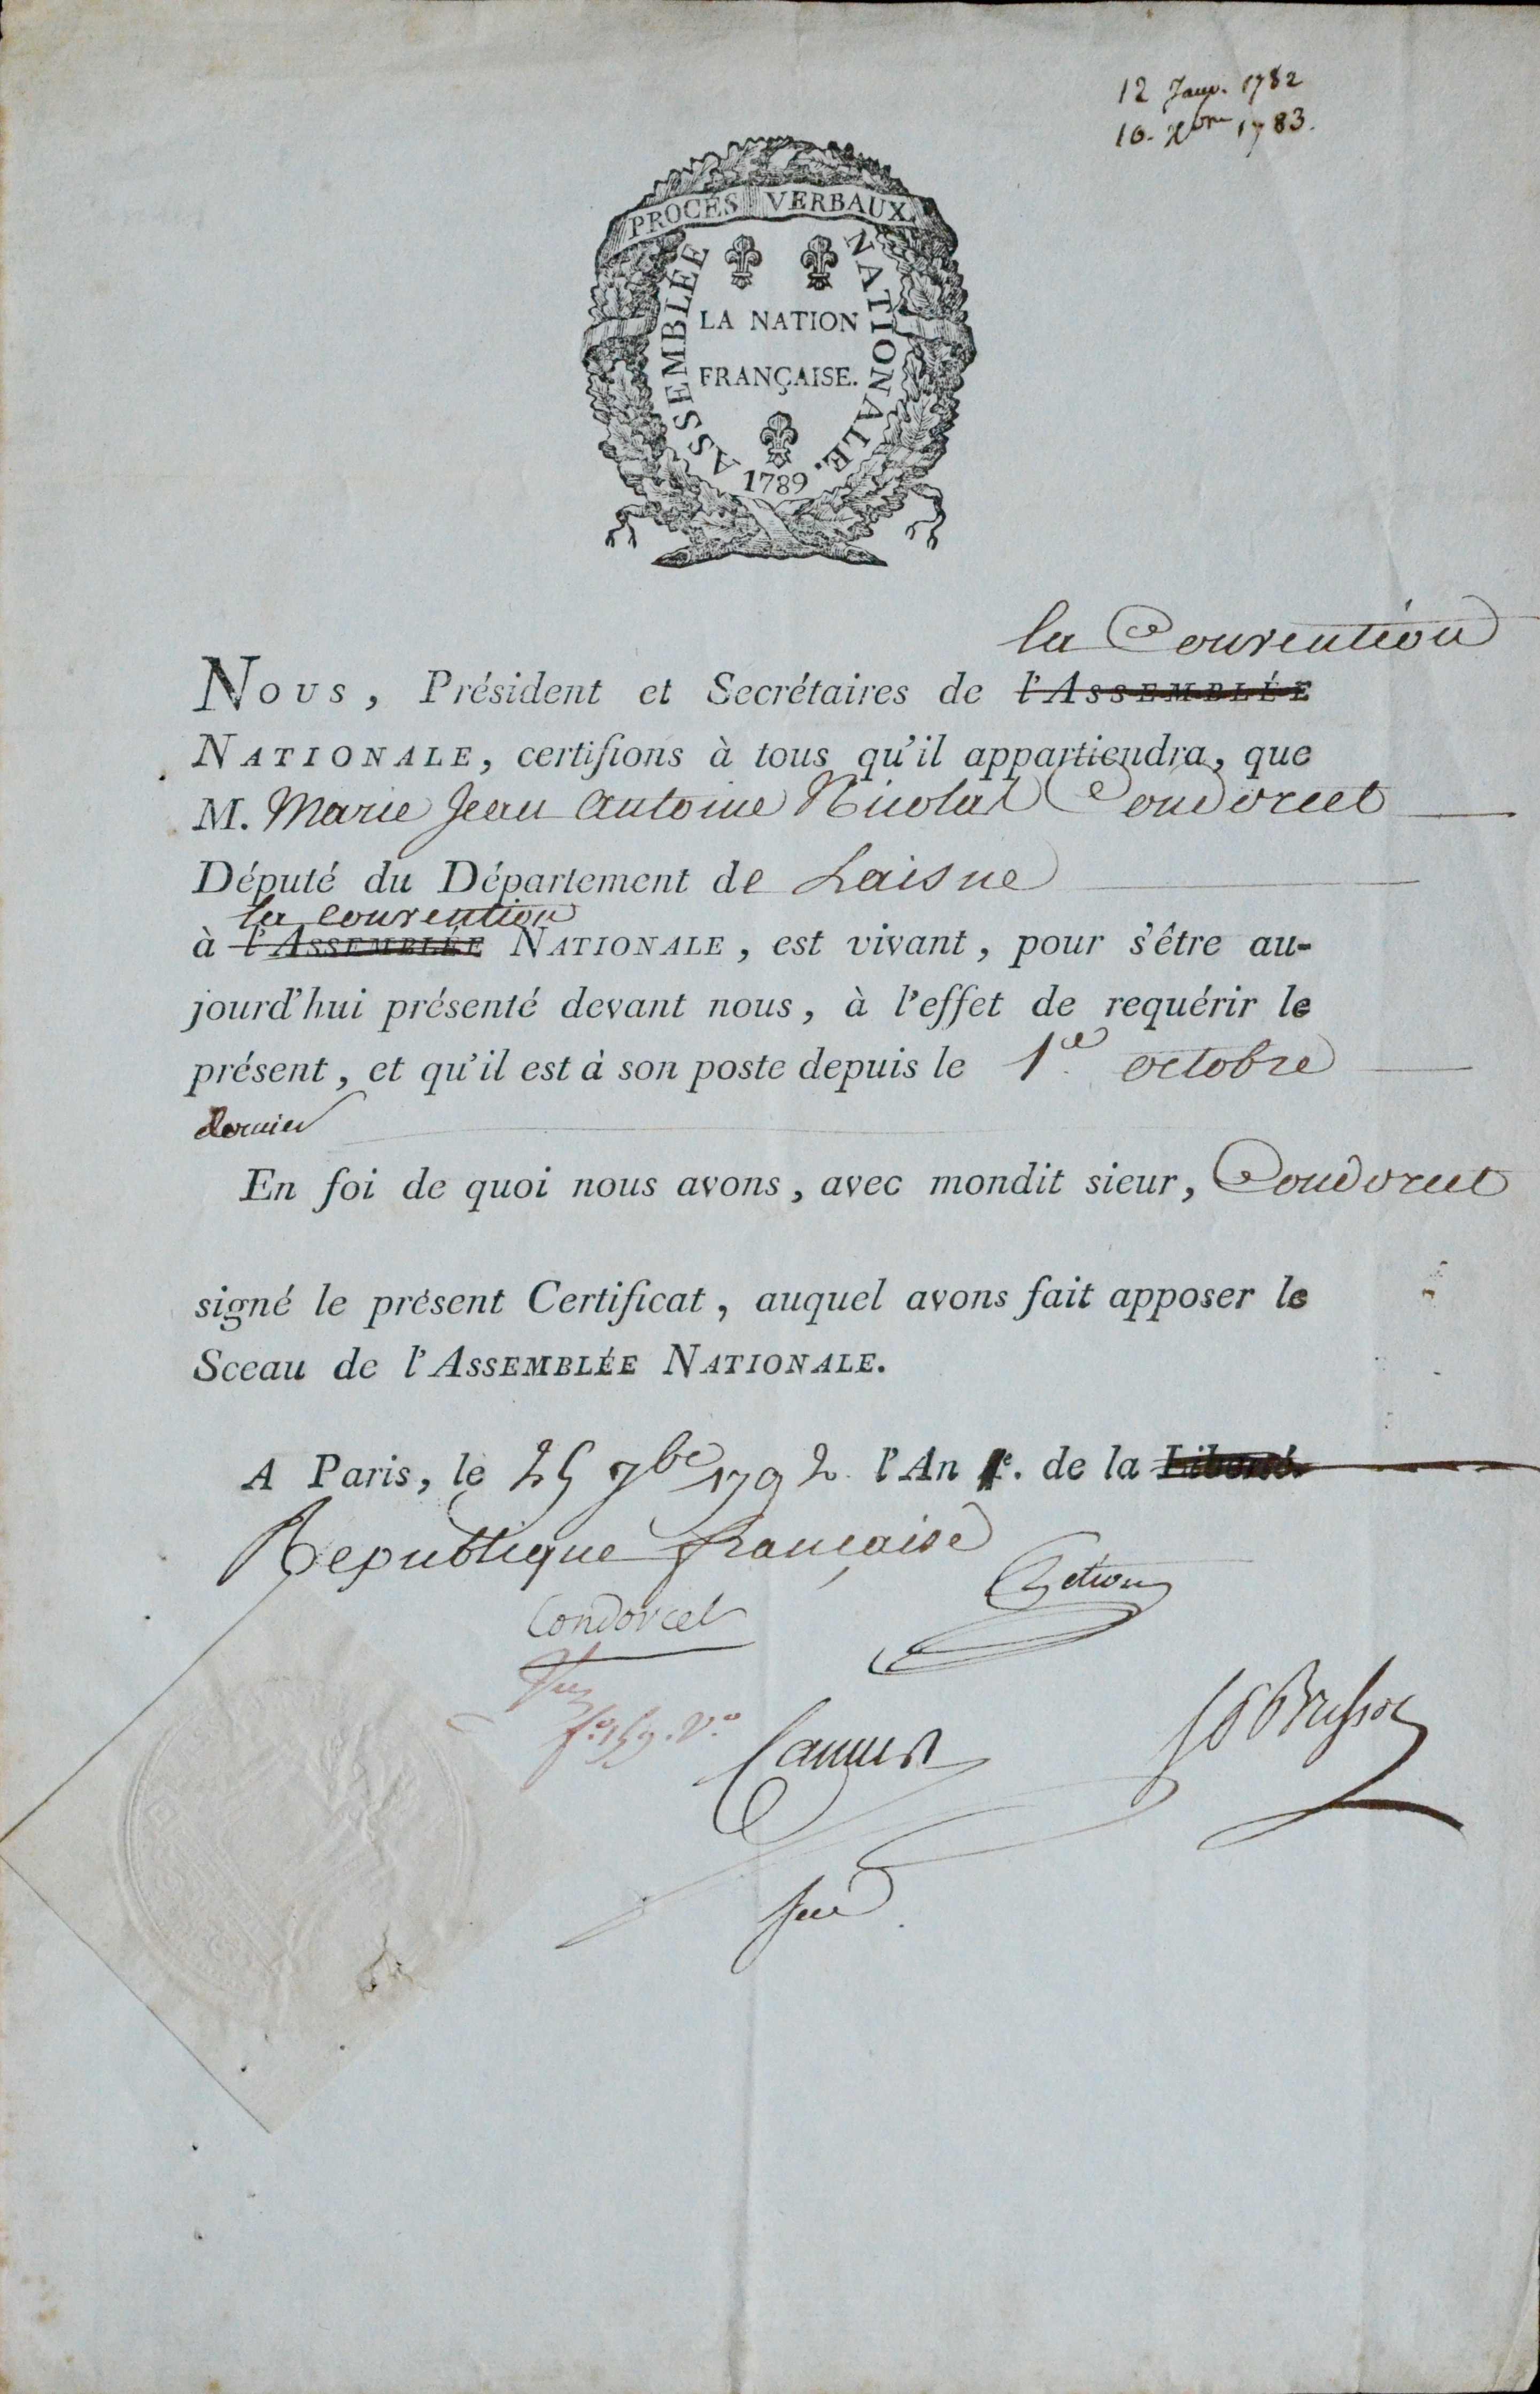 12 Janv. 1782
10. Xbre 1783.
PROCÉS VERBAUX
ASSEMBLÉE NATIONALE.
LA NATION
FRANÇAISE.
1789
la Convention
Nous, Président et Secrétaires de l'ASSEMBLÉE
NATIONALE, certifions à tous qu'il appartiendra, que
M. Marie Jean Antoine Nicolas Condorcet
Député du Département de Laisne
la convention
à l'ASSEMBLÉE NATIONALE, est vivant, pour s'être au-
jourd'hui présenté devant nous, à l'effet de requérir le
présent, et qu'il est à son poste depuis le 1er octobre
dernier
En foi de quoi nous avons, avec mondit sieur, Condorcet
signé le présent Certificat, auquel avons fait apposer le
Sceau de l'ASSEMBLÉE NATIONALE.
A Paris, le 25 7bre 1792 l'An 1e. de la Liberté.
Republique française
Condorcet
Petion
fo. 159. Vo.
Camus
JP Brissot